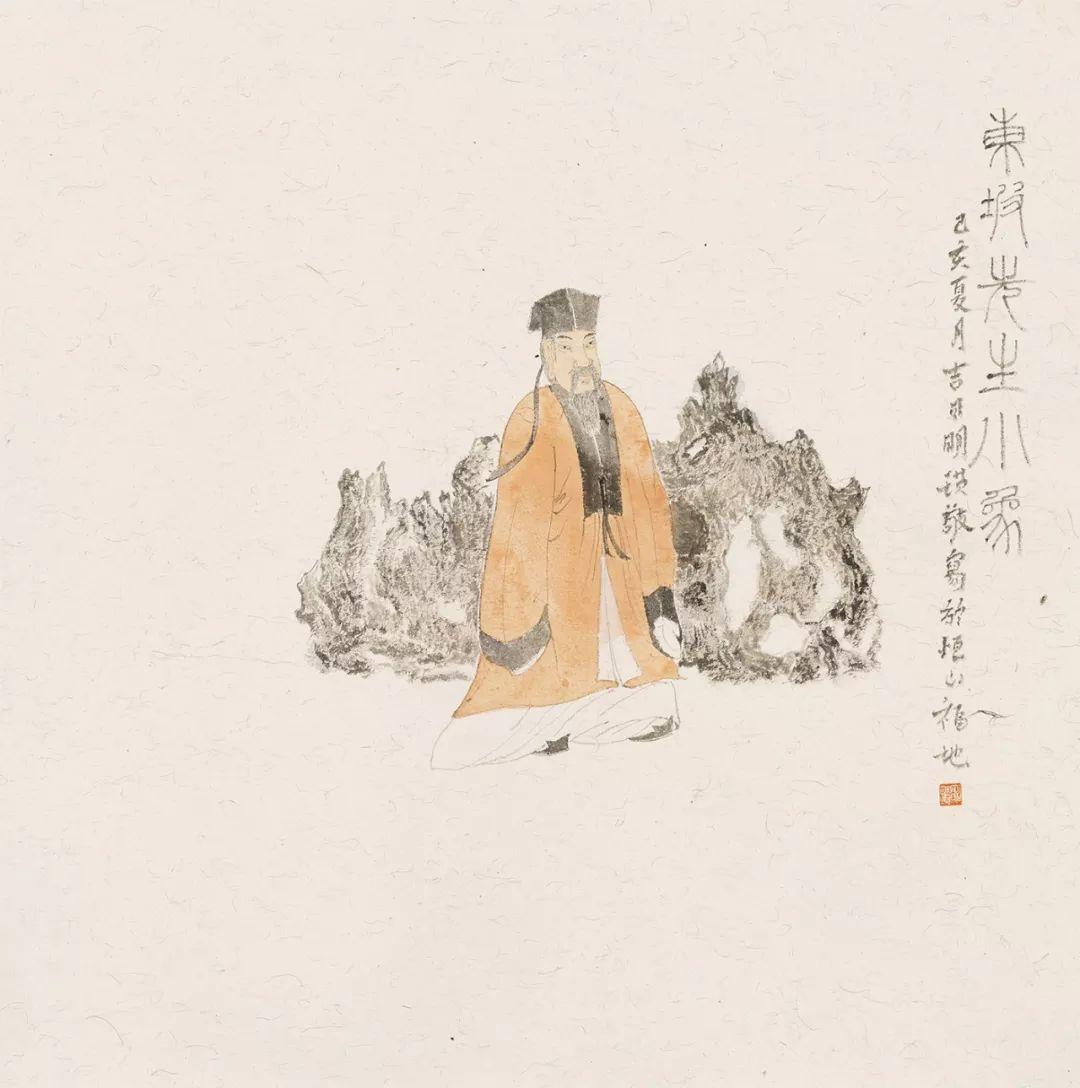 東坡先生小象
己亥夏月吉日明鏡敬寫於恒山福地